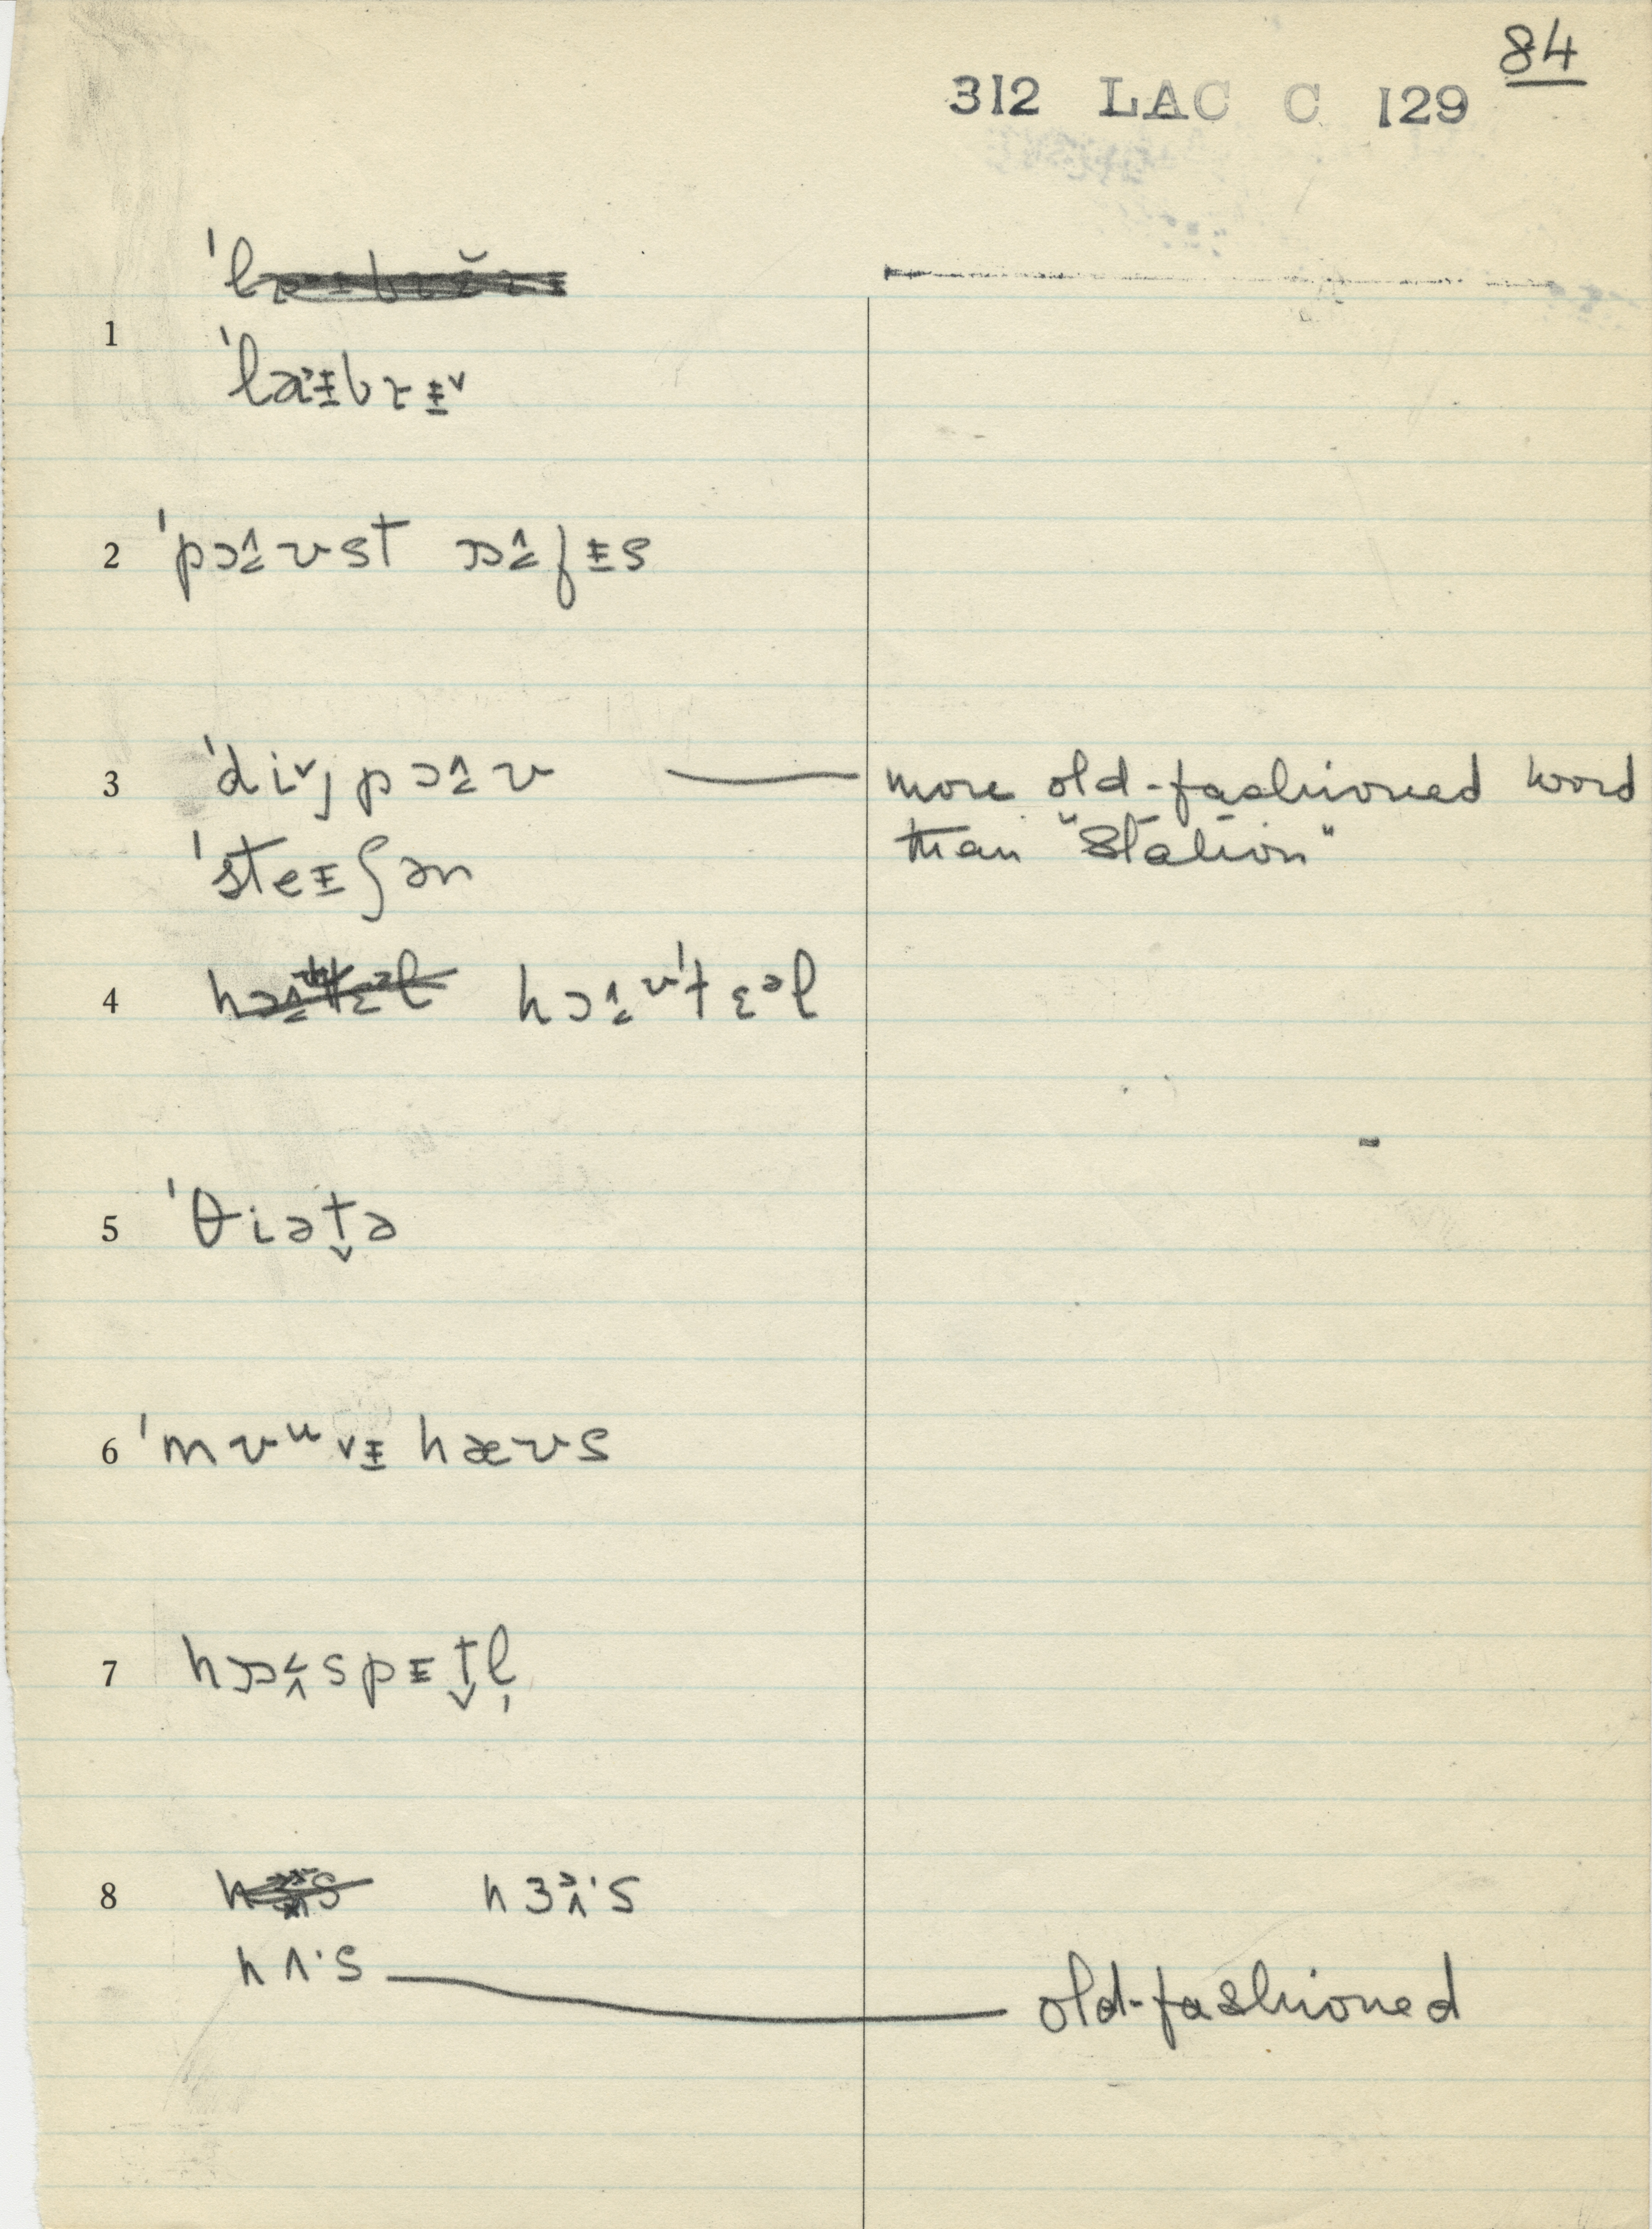 84
312 LAC C 129
1
ˈlaɪbrɪ˅
2 ˈpɔ˄ʊst ɒ˄fɪs
3 ˈdi˅jpɔ˄ʊ — more old-fashioned word
ˈsteɪʃən than "Station"
4 hɔ˄ʊˈtɛᵊl
5 ˈθiət̬ə
6 ˈmʊᵘvɪ hæʊs
7 hɒ˂spɪt̬l̩
8 hɜᵊ˄·s
hʌ·s — old-fashioned